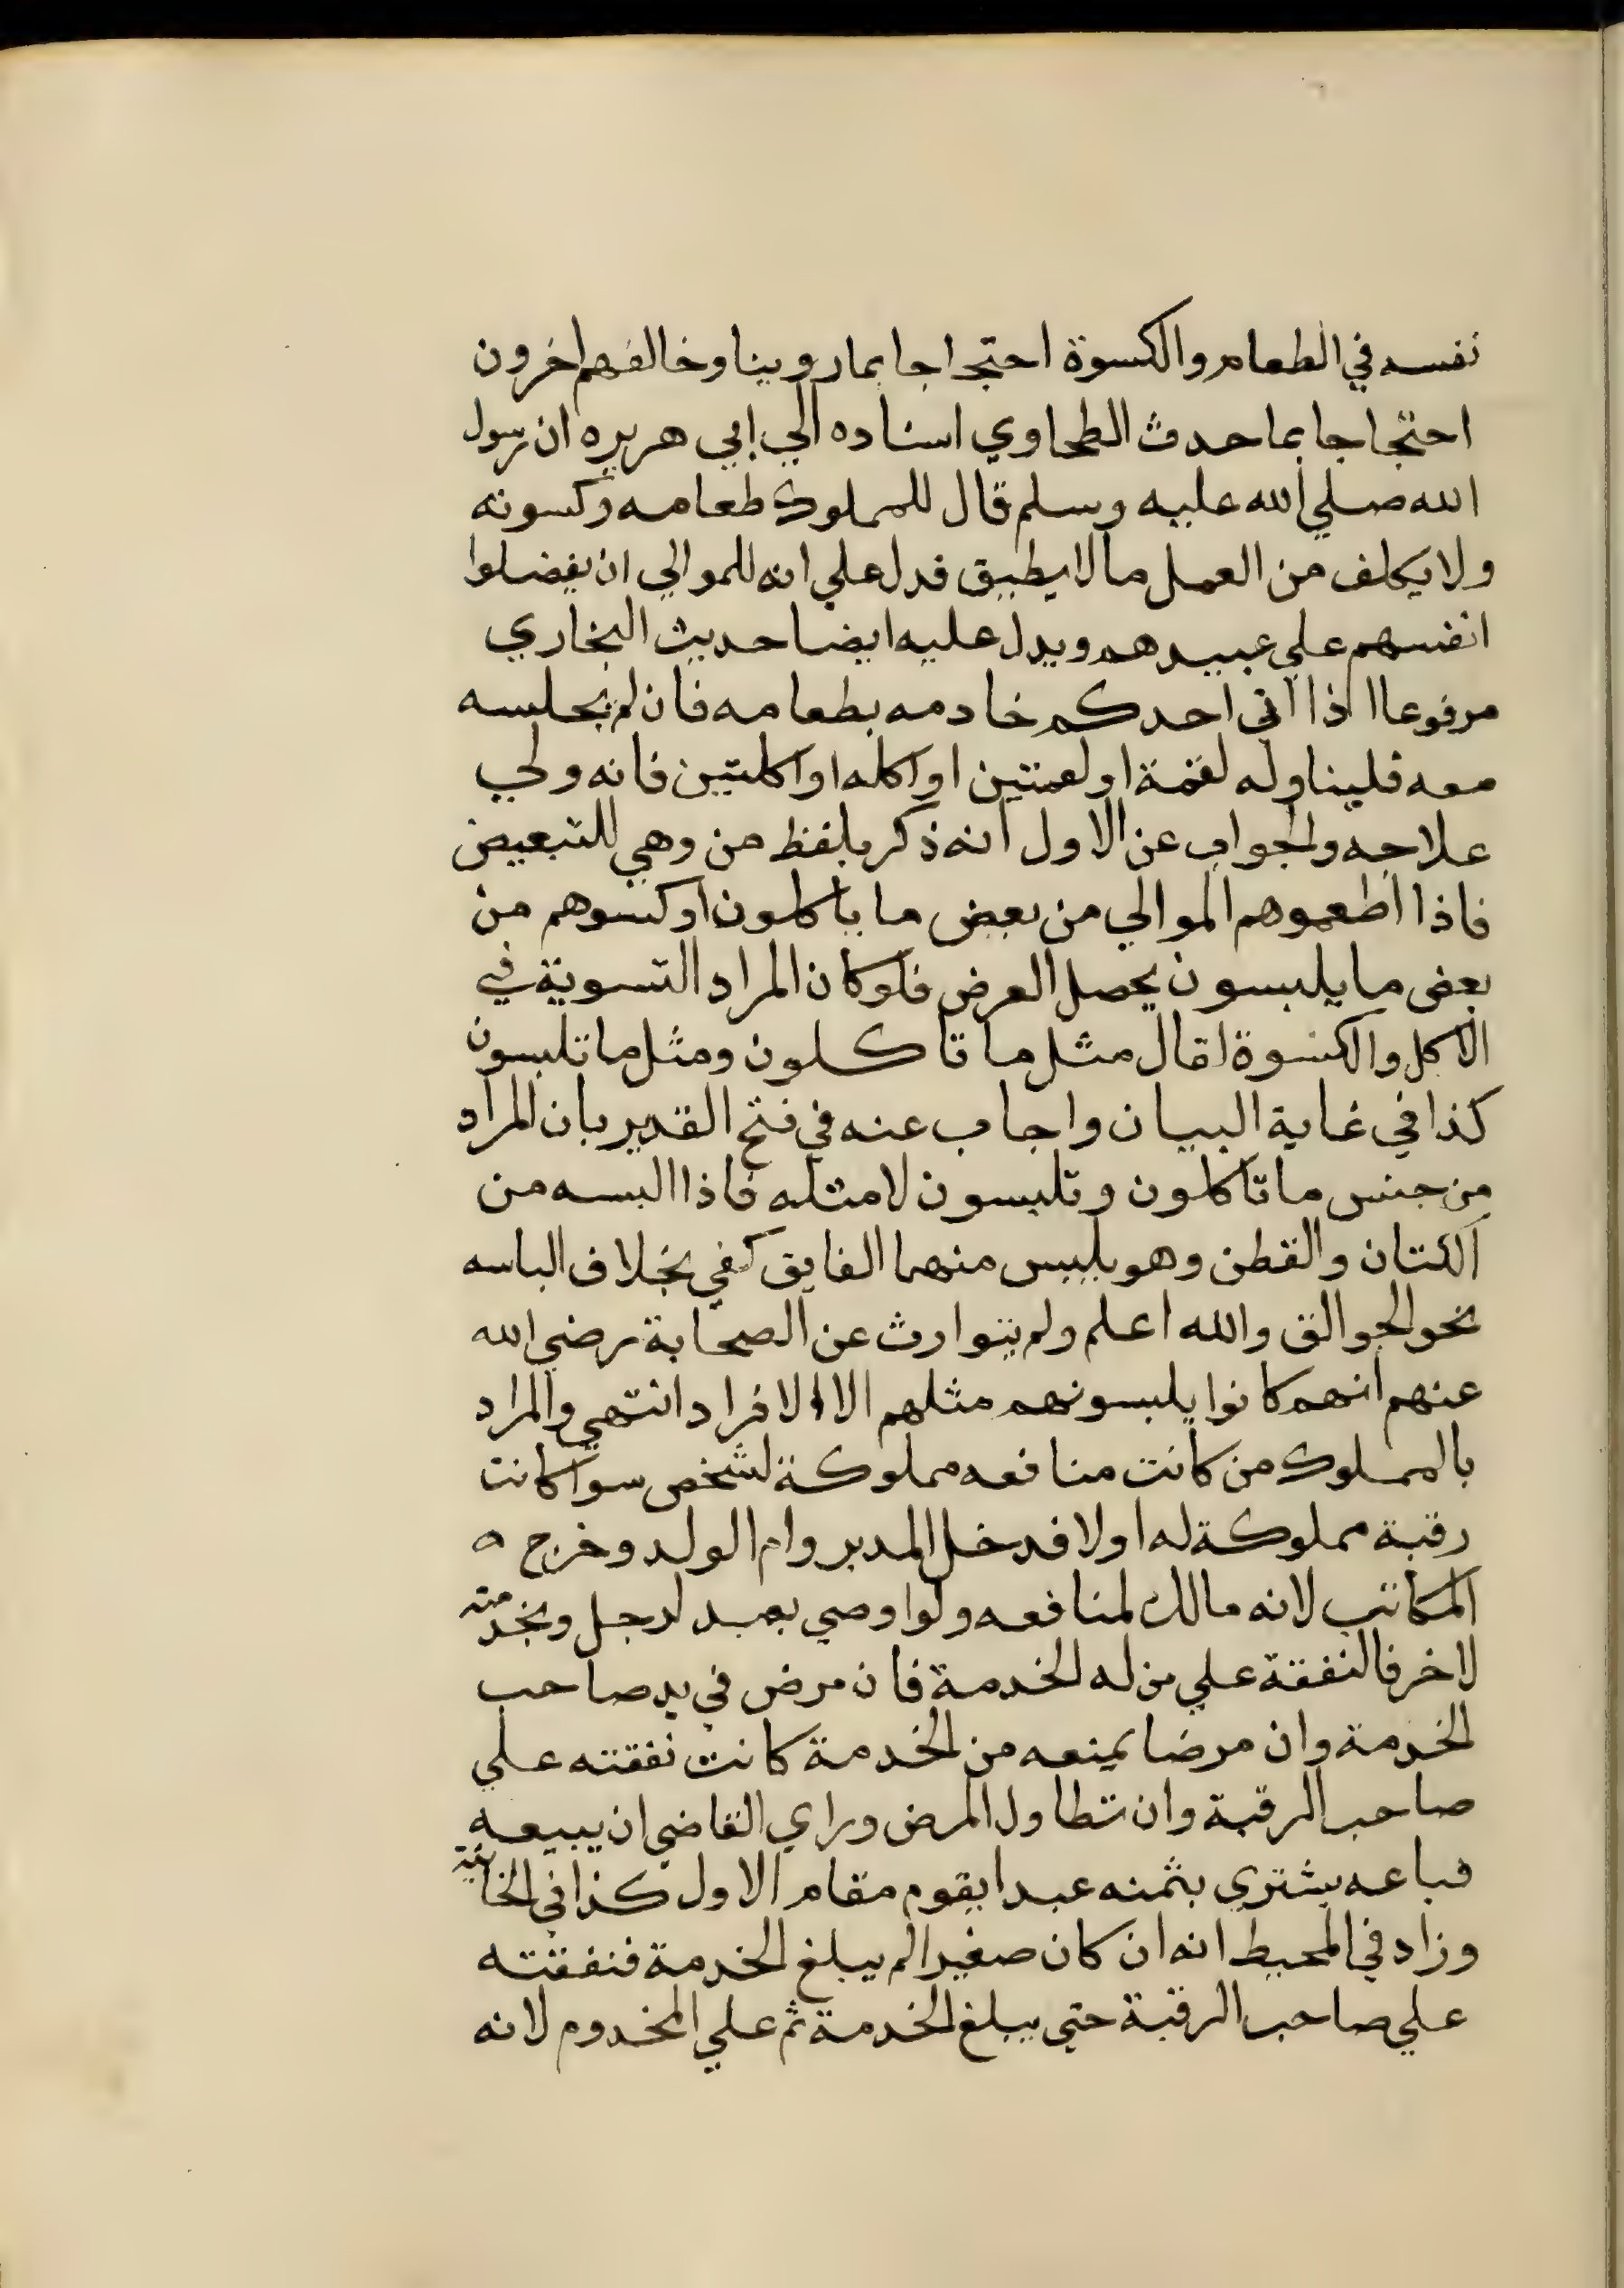 نفسه في الطعام والكسوة احتجاجا بما روينا وخالفهم اخرون
احتجاجا بما حدث الطحاوي اسناده الي ابي هريره ان رسول
الله صلي الله عليه وسلم قال للمملوك طعامه وكسوته
ولا يكلف من العمل ما لا يطيق فدل علي انه للموالي ان يفضلوا
انفسهم علي عبيدهم ويدل عليه ايضا حديث البخاري
مرفوعا اذا اتي احدكم خادمه بطعامه فان لم يجلسه
معه فليناوله لقمة او لقمتين او اكله او اكلتين فانه ولي
علاجه والجواب عن الاول انه ذكر بلفظ من وهي للتبعيض
فاذا اطعموهم الموالي من بعض ما ياكلون او كسوهم من
بعض ما يلبسون يحصل الغرض فلو كان المراد التسوية في
الاكل والكسوة لقال مثل ما تاكلون ومثل ما تلبسون
كذا في غاية البيان واجاب عنه في فتح القدير بان المراد
من جنس ما تاكلون وتلبسون لا مثله فاذا البسه من
الكتان والقطن وهو يلبس منهما الفايق كفي بخلاف الباسه
نحو الجوالق والله اعلم ولم يتوارث عن الصحابة رضي الله
عنهم انهم كانوا يلبسونهم مثلهم الا الافراد انتهي والمراد
بالمملوك من كانت منافعه مملوكة لشخص سوا كانت
رقبة مملوكة له او لا فدخل المدبر وام الولد وخرج ه
المكاتب لانه مالك لمنافعه ولو اوصي بعبد لرجل وبخدمته
لاخر فالنفقة علي من له الخدمة فان مرض في يد صاحب
الخدمة وان مرضا يمنعه من الخدمة كانت نفقته علي
صاحب الرقبة وان تطاول المرض وراي القاضي ان يبيعه
فباعه يشتري بثمنه عبدا يقوم مقام الاول كذا في الخانية
وزاد في المحيط انه ان كان صغيرا لم يبلغ الخدمة فنفقته
علي صاحب الرقبة حتي يبلغ الخدمة ثم علي المخدوم لانه